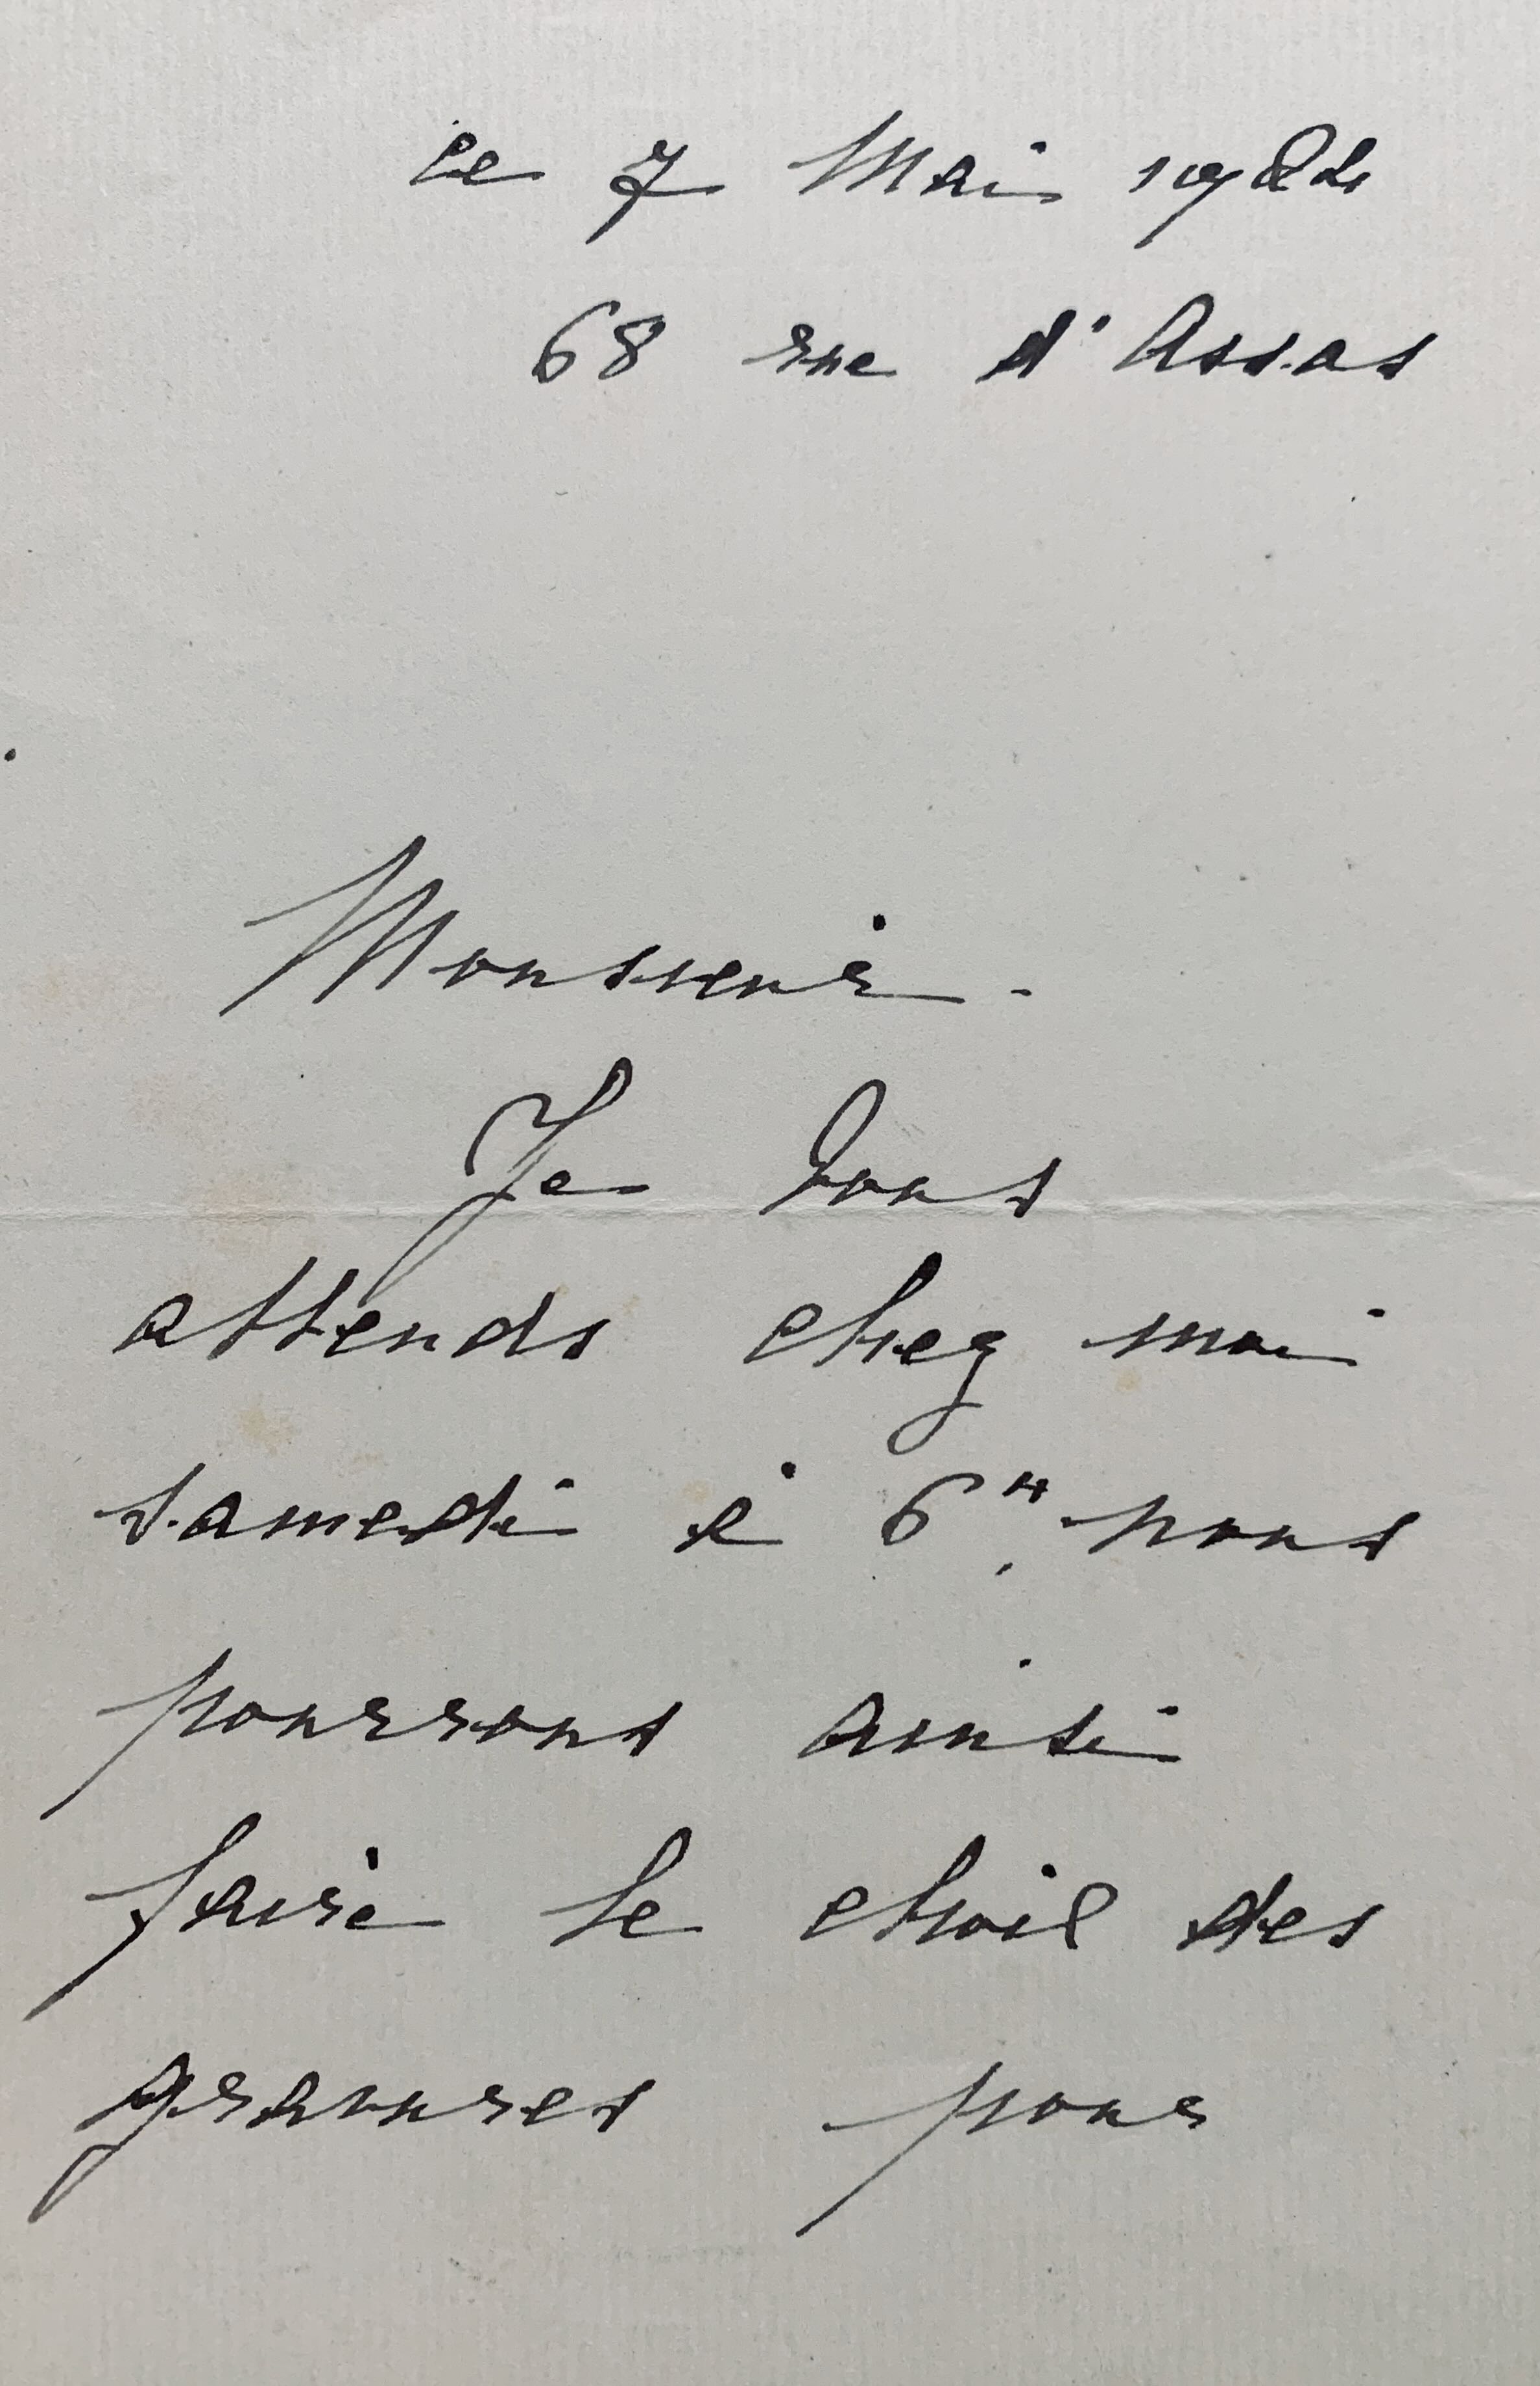 ce 7 Mai 1924
68 rue d'Assas
Monsieur -
Je vous
attends chez moi
samedi à 6H, nous
pourrons ainsi
faire le choix des
gravures pour